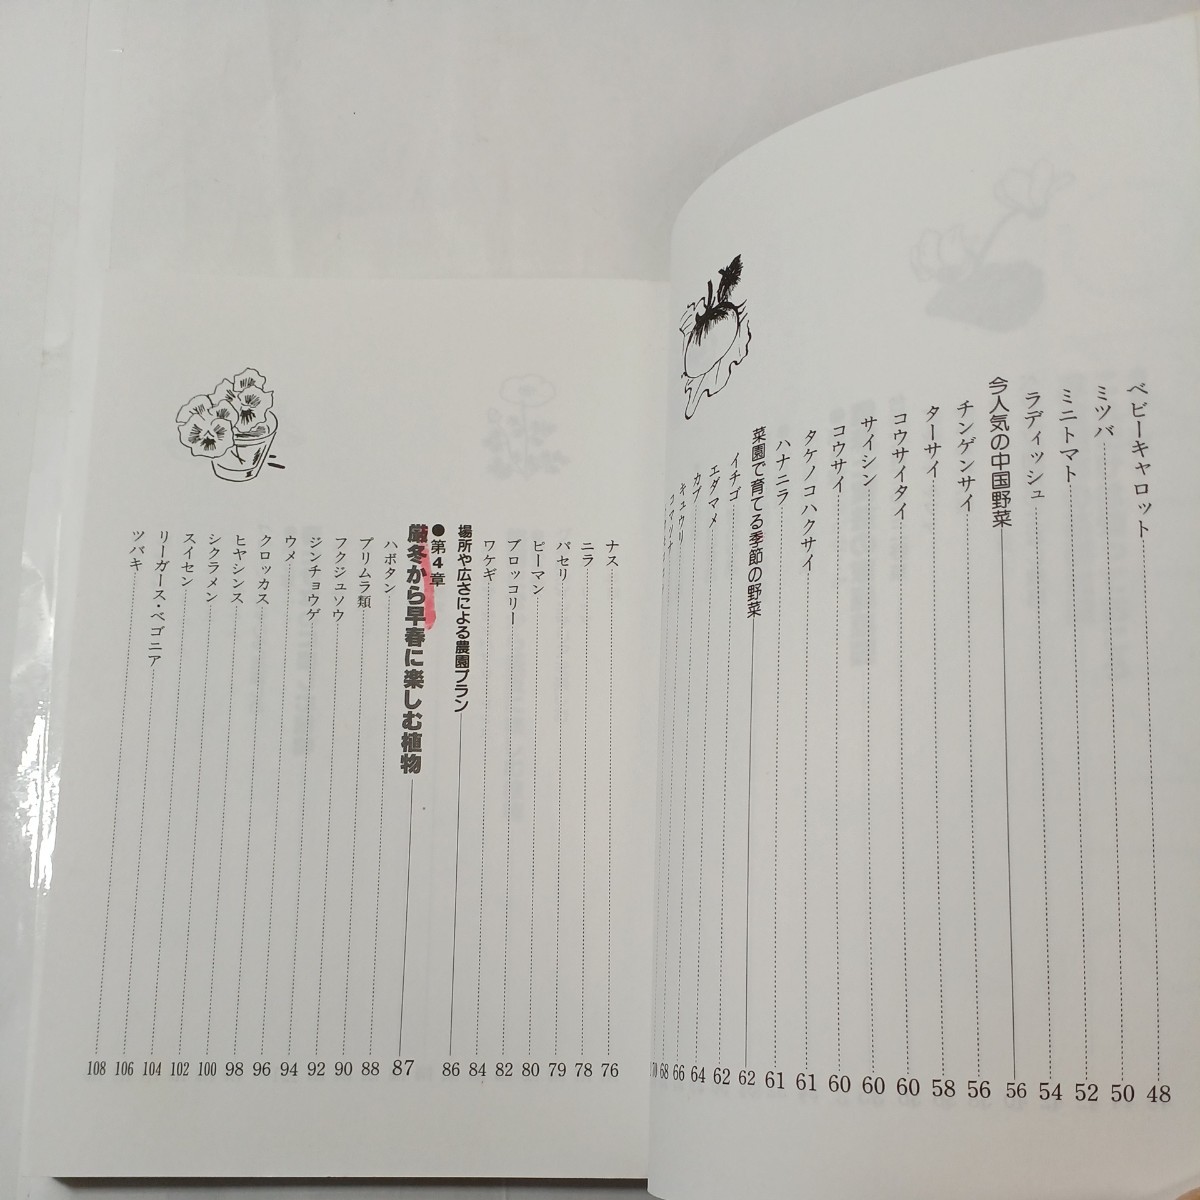 ベビーキャロット 48
ミツバ 50
ミニトマト 52
ラディッシュ 54
今人気の中国野菜 56
チンゲンサイ 56
ターサイ 58
コウサイタイ 60
サイシン 60
コウサイ 60
タケノコハクサイ 61
ハナニラ 61
菜園で育てる季節の野菜 62
イチゴ 62
エダマメ 64
カブ 66
キュウリ 68
ナス 76
ニラ 78
パセリ 79
ピーマン 80
ブロッコリー 82
ワケギ 84
場所や広さによる農園プラン 86
●第4章
厳冬から早春に楽しむ植物 87
ハボタン 88
プリムラ類 90
フクジュソウ 92
ジンチョウゲ 94
ウメ 96
クロッカス 98
ヒヤシンス 100
シクラメン 102
スイセン 104
リーガース・ベゴニア 106
ツバキ 108